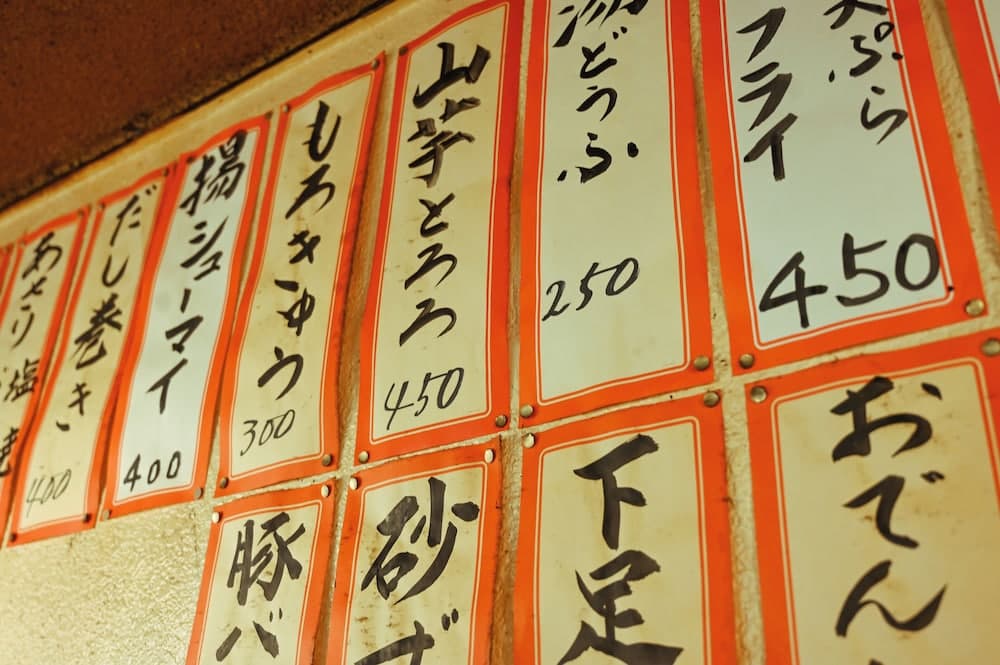 天ぷら
フライ
450
湯どうふ
250
山芋とろろ
450
もろきゅう
300
揚シューマイ
400
だし巻き
400
あさり塩焼
おでん
下足
砂ず
豚バ